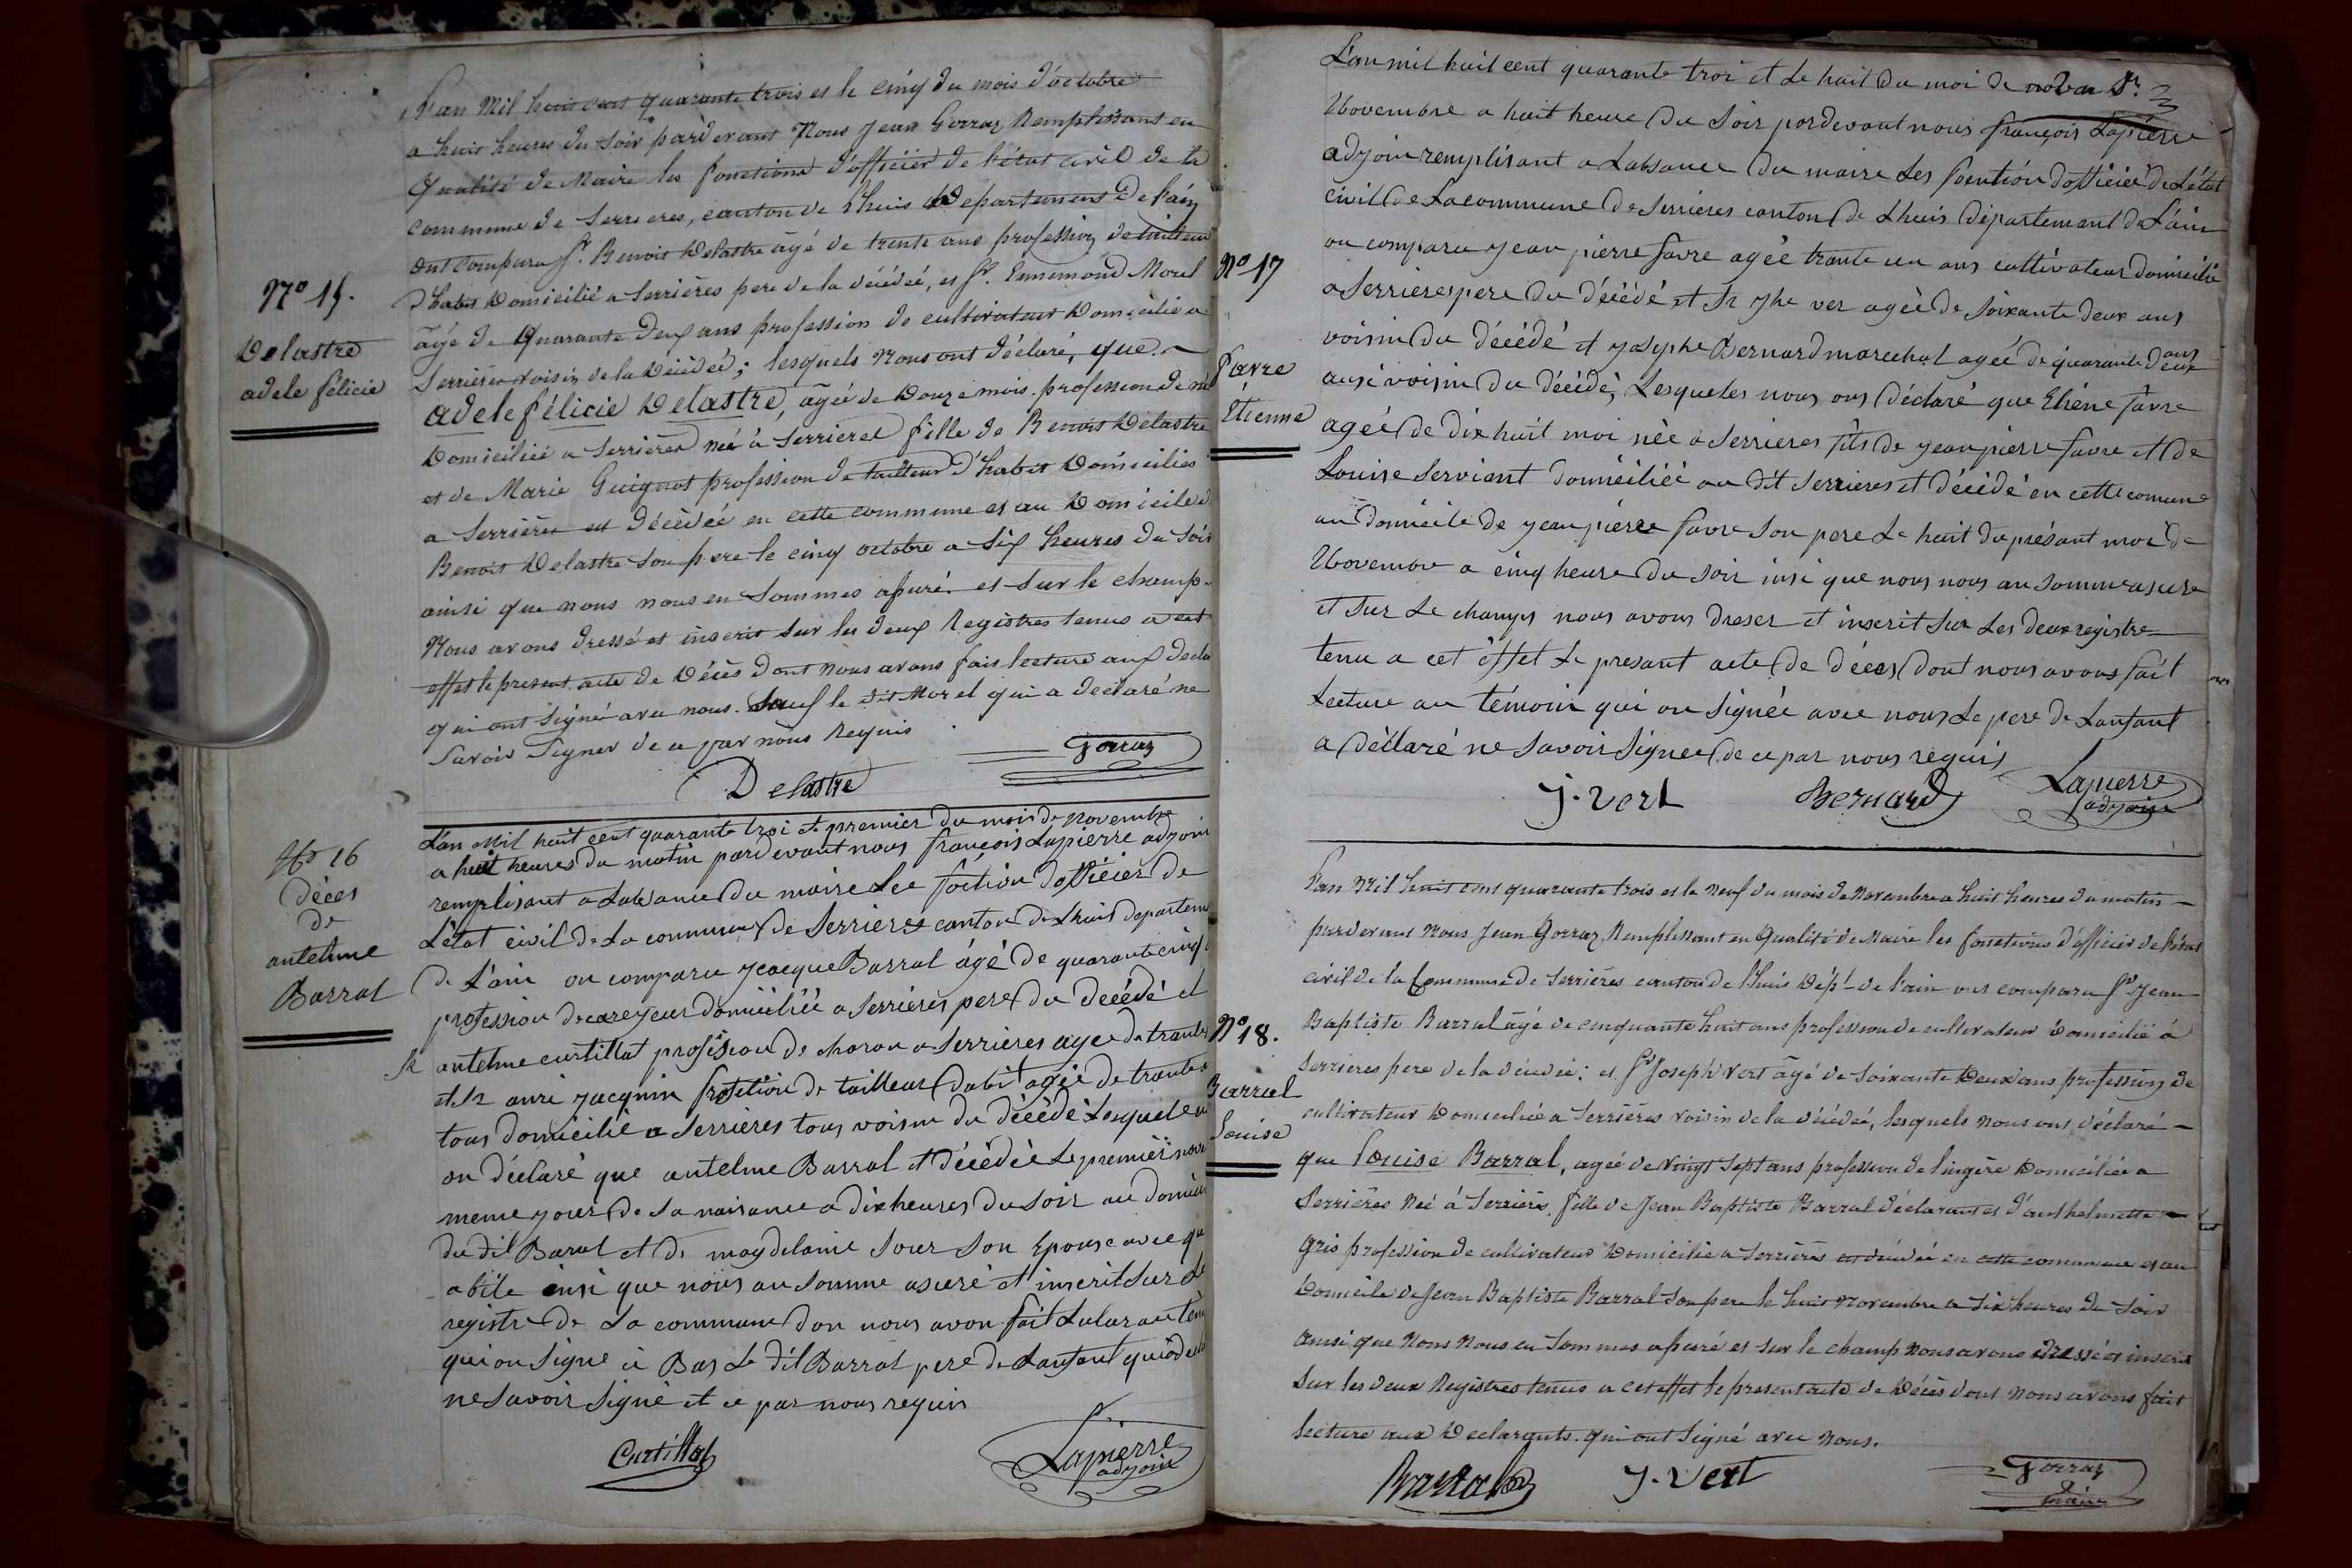 Nº 15.
Delastre
adele félicie
L'an Mil huit cent quarante trois et le cinq du mois d'octobre
a huit heures du soir pardevant Nous Jean Gorraz Remplissant en
Qualité de Maire les fonctions d'officier de l'état civil de la
commune de Serrieres, canton de Lhuis Département De l'ain
Ont comparu Sr. Benoit Delastre âgé de trente ans profession de tailleur
d'habit Domicilié a Serrières pere de la décédeé, et Sr. Ennemond Morel
âgé de Quarante Deux ans profession de cultivateur Domicilié a
Serrières voisin de la Décédeé; lesquels Nous ont déclaré, que
adele félicie Delastre, âgéé de Douze mois profession de
Domiciliéé a Serrières neé à Serrieres fille de Benoit Delastre
et de Marie Guignot profession de tailleur d'habit Domiciliés
a Serrières est décédéé en cette commune et au Domicile de
Benoit Delastre son pere le cinq octobre a Six heures du Soir
ainsi que nous nous en Sommes assuré. et Sur le champ
Nous avons dressé et inscrit Sur les deux Registres tenus a cet
effet le present acte de Décès dont nous avons fait lecture aux decla
qui ont Signé avec nous. Sauf le dit Morel qui a declaré ne
Savoir Signer de ce par nous Requis
Gorraz
Delastre
Nº 16
Déces
de
antelme
Barral
L'an Mil huit cent quarante troi et premier du mois de Novembre
a huit heures du matin pardevant nous françois Lapierre adjoin
remplisant a Labsance du maire Les foction dofficier de
L'état civil de La commune de Serrieres canton de Lhuis departeme
de L'ain on comparu Jacque Barral âgé de quarante cinq
profession de careyeur domiciliéé a Serrieres pere du decédé et
Sr antelme curtillat profession de charon a Serrieres agee de trante
et Sr anri Jacquin profetion de tailleur dabit agéé de trante
tous domicilié a Serrieres tous voisin du décédé Lesquele
on déclaré que antelme Barral et décédéé Le premier nov
meme jour de Sa naisance a dix heures du soir au domici
du dit Baral et de maydelaine Sour Son Epouse avec qui
abite insi que nous an Somme asuré et inscrit Sur Le
registre de La commune don nous avon fait au tém
qui on Signe ci Bas Le dit Barral pere de Lanfant qui a decla
ne Savoir Signé et ce par nous requis
Curtillat
Lapierre
adjoin
Nº 17
Favre
Etienne
L'an mil huit cent quarante troi et Le huit du moi de
Novembre a huit heure du Soir pardevant nous françois Lapierre
adjoin remplisant a Labsance du maire Les fonction d'officiéé de L'état
civil de La commune de Serrieres canton de Lhuis département de L'ain
on comparu Jean pierre favre agéé trante un ans cultivateur domicilié
a Serrieres pere du décédé et Sr Jhe ver agéé de Soixante deux ans
voisin du décédé et Josephe Bernard marechal agéé de quarante deux ans
ausi voisin du décédé, Lesqueles nous ons déclaré que Etiéne favre
agéé de dix huit moi néé a Serrieres fils de Jean pierre favre et de
Louise Servient domiciliéé au dit Serrieres et décédé en cette comune
au domicile de Jean pierre favre Son pere Le huit du présant moi de
Novembre a cinq heure du soir insi que nous nous an Somme asure
et Sur Le champs nous avons dreser et inscrit Sur Les deux registre
tenu a cet effet Le presant acte de déces dont nous avons fait
Lecture au témoin qui on Signéé avec nous Le pere de Lanfant
a déclaré ne Savoir Signer de ce par nous requis
J. vert
Bernard
Lapierre
adjoin
Nº 18.
Barral
Louise
L'an Mil huit cent quarante trois et le Neuf du mois de Novembre a huit heures du matin
pardevant Nous Jean Gorraz, Remplissant en Qualité de Maire les fonctions d'officier de l'état
civil de la Commune de Serrières canton de Lhuis Dépt. de l'ain ont comparu Sr Jean
Baptiste Barral âgé de cinquante huit ans profession de cultivateur Domicilié à
Serrieres pere de la décédéé; et Sr Joseph Vert âgé de Soixante Deux ans profession de
cultivateur Domiciliéé a Serrières voisin de la décédeé, lesquels nous ont déclaré
que Louise Barral, ageé de vingt Sept ans profession de lingère Domiciliéé a
Serrières Neé à Serrières, fille de Jean Baptiste Barral déclarant et d'anthelmette
Gris profession de cultivateur Domicilié a Serrières est décédéé en cette commune et au
Domicile de Jean Baptiste Barral Son pere le huit Novembre a Six heures du Soir
ainsi que Nous Nous en Sommes assuré et sur le champ Nous avons dressé et inscrit
Sur les deux Registres tenus a cet effet le present acte de Décès dont Nous avons fait
lecture aux Declarants. qui ont Signé avec Nous.
Barral
J. vert
Gorraz
maire